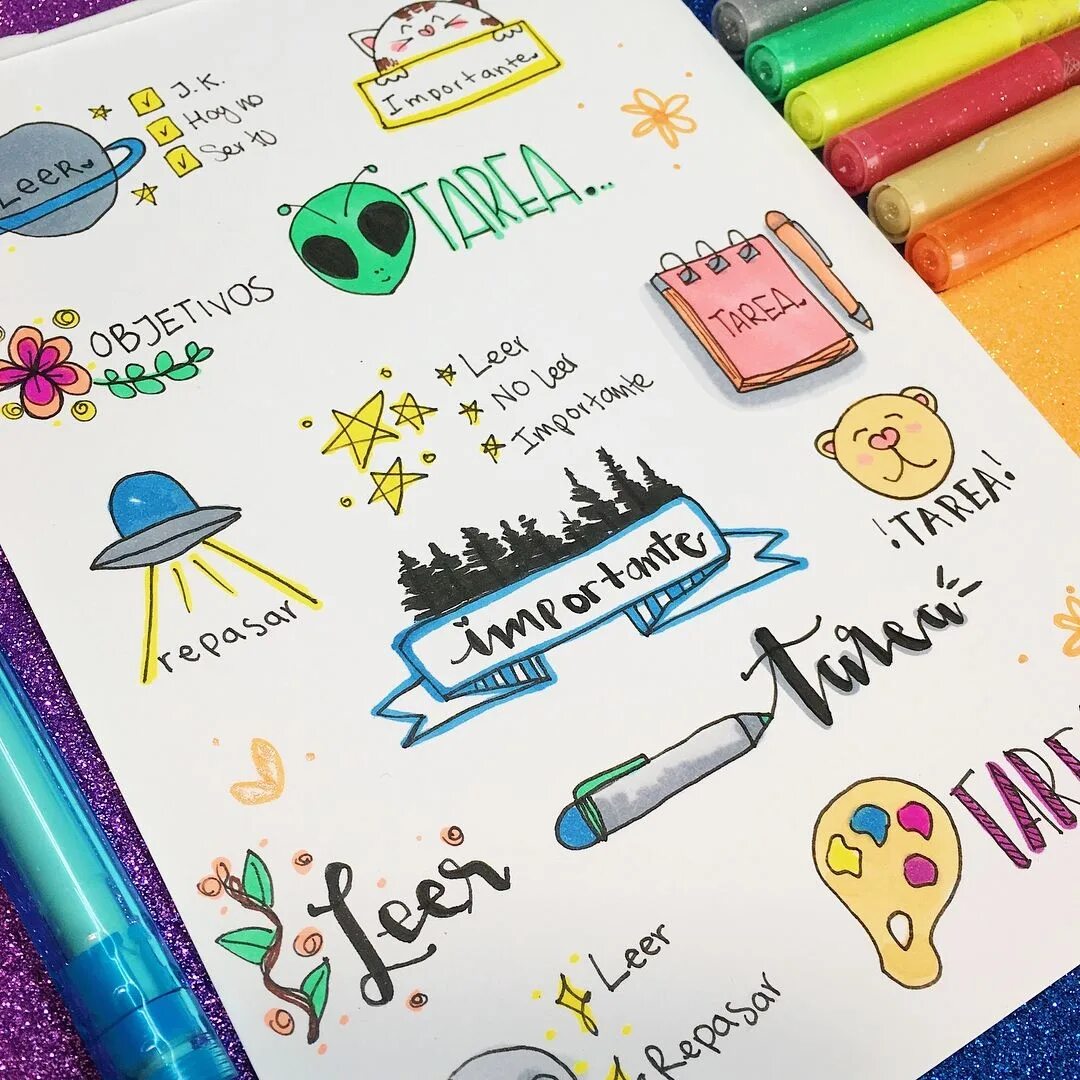 LEER
J.K.
Hoy no
Ser tu
Importante
TAREA...
OBJETIVOS
TAREA
Leer
No leer
Importante
¡TAREA!
repasar
importante
tarea
TAREA
Leer
Leer
Repasar